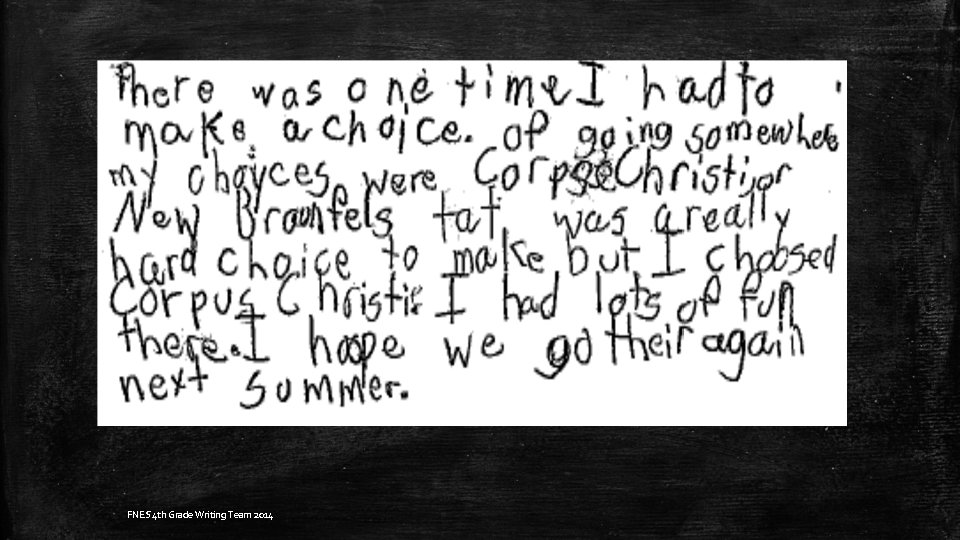 There was one time I had to
make a choice. of going somewhere
my choyces were Corpse Christi or
New Braunfels tat was a really
hard choice to make but I choosed
Corpus Christi I had lots of fun
there. I hoope we go their again
next summer.
FNES 4th Grade Writing Team 2014